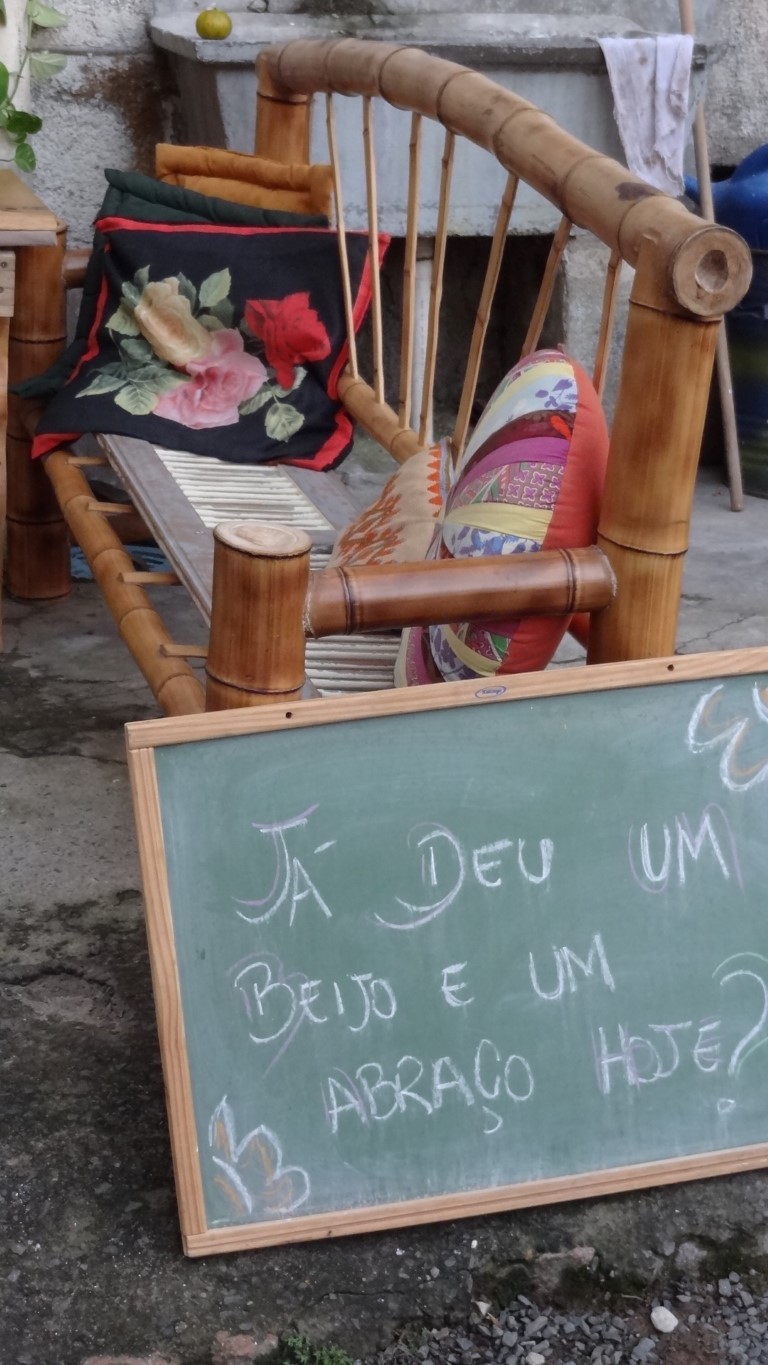 JÁ DEU UM
BEIJO E UM
ABRAÇO HOJE?